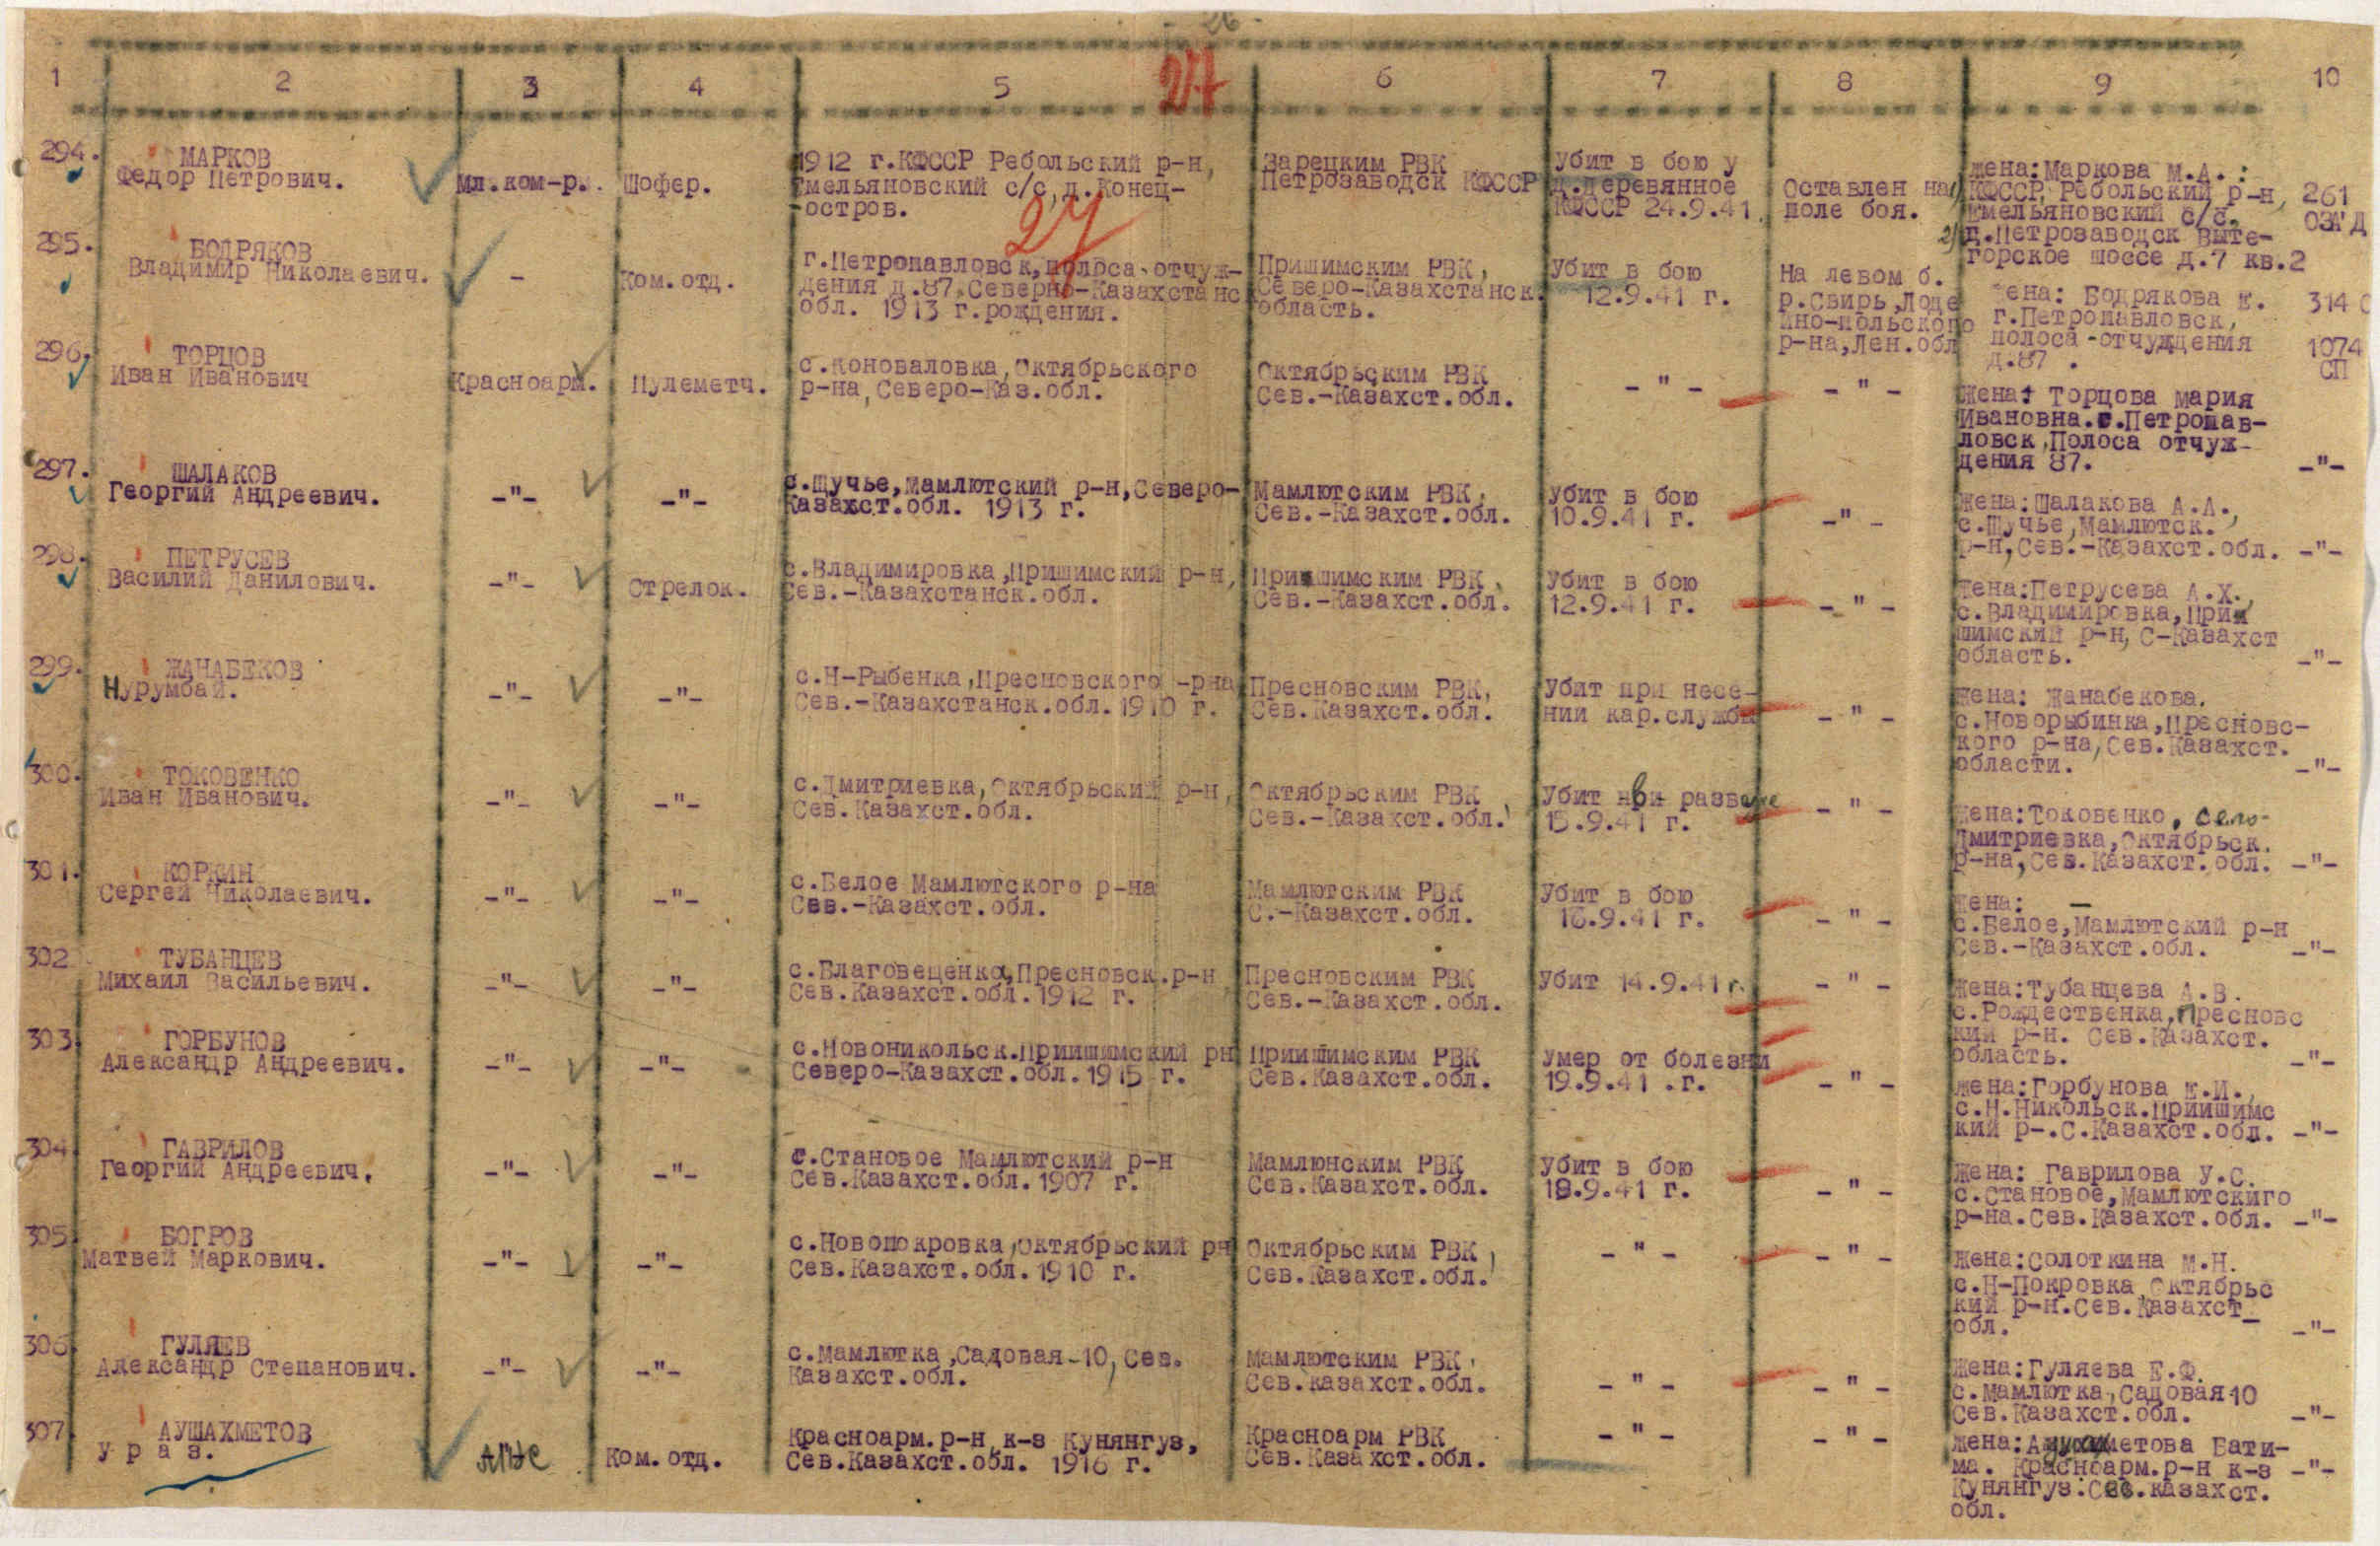 26 -
27
1 2 3 4 5 6 7 8 9 10
294. МАРКОВ
Федор Петрович.
Мл.ком-р.
Шофер.
1912 г.КФССР Ребольский р-н,
Емельяновский с/с,д.Конец-
-остров.
27
Зарецким РВК
Петрозаводск КФССР
Убит в бою у
д.Деревянное
КФССР 24.9.41.
Оставлен на
поле боя.
Жена:Маркова М.А.:
КФССР, Ребольский р-н,
Емельяновский с/с,
д.Петрозаводск Выте-
горское шоссе д.7 кв.2
261
ОЗАД
295. БОДРЯКОВ
Владимир Николаевич.
-
Ком.отд.
г.Петропавловск,полоса-отчуж-
дения д.87,Северно-Казахстанс
обл. 1913 г.рождения.
Пришимским РВК,
Северо-Казахстанск.
область.
Убит в бою
12.9.41 г.
На левом б.
р.Свирь,Лоде
йно-польского
р-на,Лен.обл
Жена: Бодрякова Е.
г.Петропавловск,
полоса-отчуждения
д.87 .
314 С
1074
СП
296. ТОРЦОВ
Иван Иванович
Красноарм.
Пулеметч.
с.Коноваловка,Октябрьского
р-на,Северо-Каз.обл.
Октябрьским РВК
Сев.-Казахст.обл.
- " -
- " -
Жена: Торцова Мария
Ивановна.г.Петропав-
ловск,Полоса отчуж-
дения 87.
-"-
297. ШАЛАКОВ
Георгий Андреевич.
-"-
-"-
с.Щучье,Мамлютский р-н,Северо-
Казахст.обл. 1913 г.
Мамлютским РВК,
Сев.-Казахст.обл.
Убит в бою
10.9.41 г.
-" -
Жена:Шалакова А.А.,
с.Щучье,Мамлютск.
р-н,Сев.-Казахст.обл.
-"-
298. ПЕТРУСЕВ
Василий Данилович.
-"-
Стрелок.
с.Владимировка,Пришимский р-н,
Сев.-Казахстанск.обл.
Пришимским РВК,
Сев.-Казахст.обл.
Убит в бою
12.9.41 г.
- " -
Жена:Петрусева А.Х.,
с.Владимировка,При
шимский р-н, С-Казахст
область.
-"-
299. ЖАНАБЕКОВ
Нурумбай.
-"-
-"-
с.Н-Рыбенка,Пресновского -рна
Сев.-Казахстанск.обл.1910 г.
Пресновским РВК,
Сев.Казахст.обл.
Убит при несе-
нии кар.службы
- " -
Жена: Жанабекова.
с.Новорыбинка,Пресновс-
кого р-на,Сев.Казахст.
области.
-"-
300. ТОКОВЕНКО
Иван Иванович.
-"-
-"-
с.Дмитриевка,Октябрьский р-н,
Сев.Казахст.обл.
Октябрьским РВК
Сев.-Казахст.обл.
Убит в разведке
15.9.41 г.
- " -
Жена:Токовенко, село-
Дмитриевка,Октябрьск.
р-на,Сев.Казахст.обл.
-"-
301. КОРКИН
Сергей Николаевич.
-"-
-"-
с.Белое Мамлютского р-на
Сев.-Казахст.обл.
Мамлютским РВК
С.-Казахст.обл.
Убит в бою
16.9.41 г.
- " -
Жена: —
с.Белое,Мамлютский р-н
Сев.-Казахст.обл.
-"-
302 ТУБАНЦЕВ
Михаил Васильевич.
-"-
-"-
с.Благовещенка,Пресновск.р-н
Сев.Казахст.обл.1912 г.
Пресновским РВК
Сев.-Казахст.обл.
Убит 14.9.41г.
- " -
Жена:Тубанцева А.В.
с.Рождественка,Пресновс
кий р-н. Сев.Казахст.
область.
-"-
303 ГОРБУНОВ
Александр Андреевич.
-"-
-"-
с.Новоникольск.Приишимский рн
Северо-Казахст.обл.1915 г.
Приишимским РВК
Сев.Казахст.обл.
Умер от болезни
19.9.41 .г.
- " -
Жена:Горбунова Е.И.,
с.Н.Никольск.Приишимс
кий р-.С.Казахст.обл.
-"-
304 ГАВРИЛОВ
Георгий Андреевич.
-"-
-"-
с.Становое Мамлютский р-н
Сев.Казахст.обл.1907 г.
Мамлюнским РВК
Сев.Казахст.обл.
Убит в бою
18.9.41 г.
- " -
Жена: Гаврилова У.С.
с.Становое,Мамлютскиго
р-на.Сев.Казахст.обл.
-"-
305 БОГРОВ
Матвей Маркович.
-"-
-"-
с.Новопокровка,Октябрьский рн
Сев.Казахст.обл.1910 г.
Октябрьским РВК,
Сев.Казахст.обл.
- " -
- " -
Жена:Солоткина М.Н.
с.Н-Покровка,Октябрьс
кий р-н.Сев.Казахст_
обл.
-"-
306 ГУЛЯЕВ
Александр Степанович.
-"-
-"-
с.Мамлютка,Садовая-10,Сев.
Казахст.обл.
Мамлютским РВК,
Сев.казахст.обл.
- " -
- " -
Жена:Гуляева Е.Ф.
с.Мамлютка,Садовая10
Сев.Казахст.обл.
-"-
307 АУШАХМЕТОВ
У р а з.
Ком.отд.
Красноарм.р-н,к-з Кунянгуз,
Сев.Казахст.обл. 1916 г.
Красноарм РВК
Сев.Казахст.обл.
- " -
- " -
Бати-
ма. Красноарм.р-н к-з
Кунянгуз.Сев.казахст.
обл.
-"-